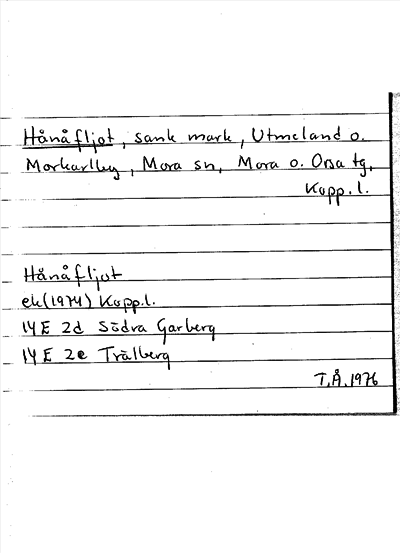 Hånåfljot, sank mark, Utmeland o.
Morkarlby, Mora sn, Mora o. Orsa tg,
Kopp. l.
Hånåfljot
ek(1974) Kopp.l.
14E 2d Södra Garberg
14E 2e Trälberg
T.Å. 1976